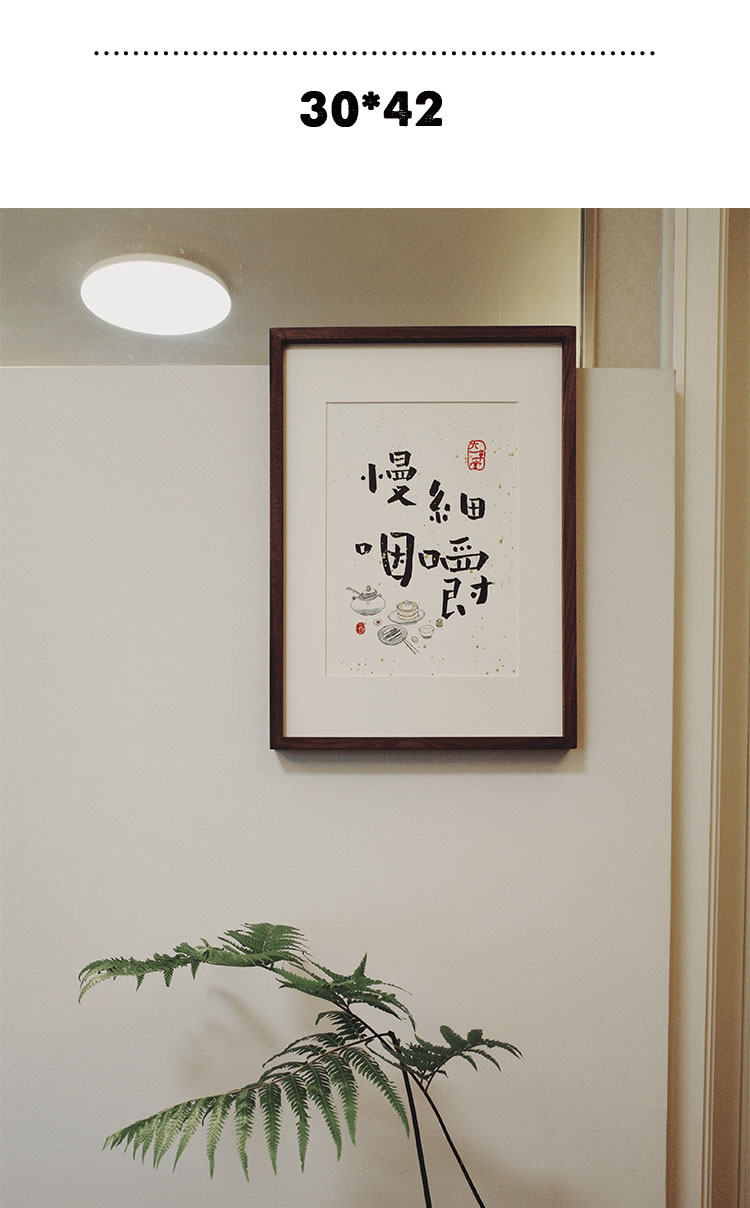 30*42
細嚼
慢咽